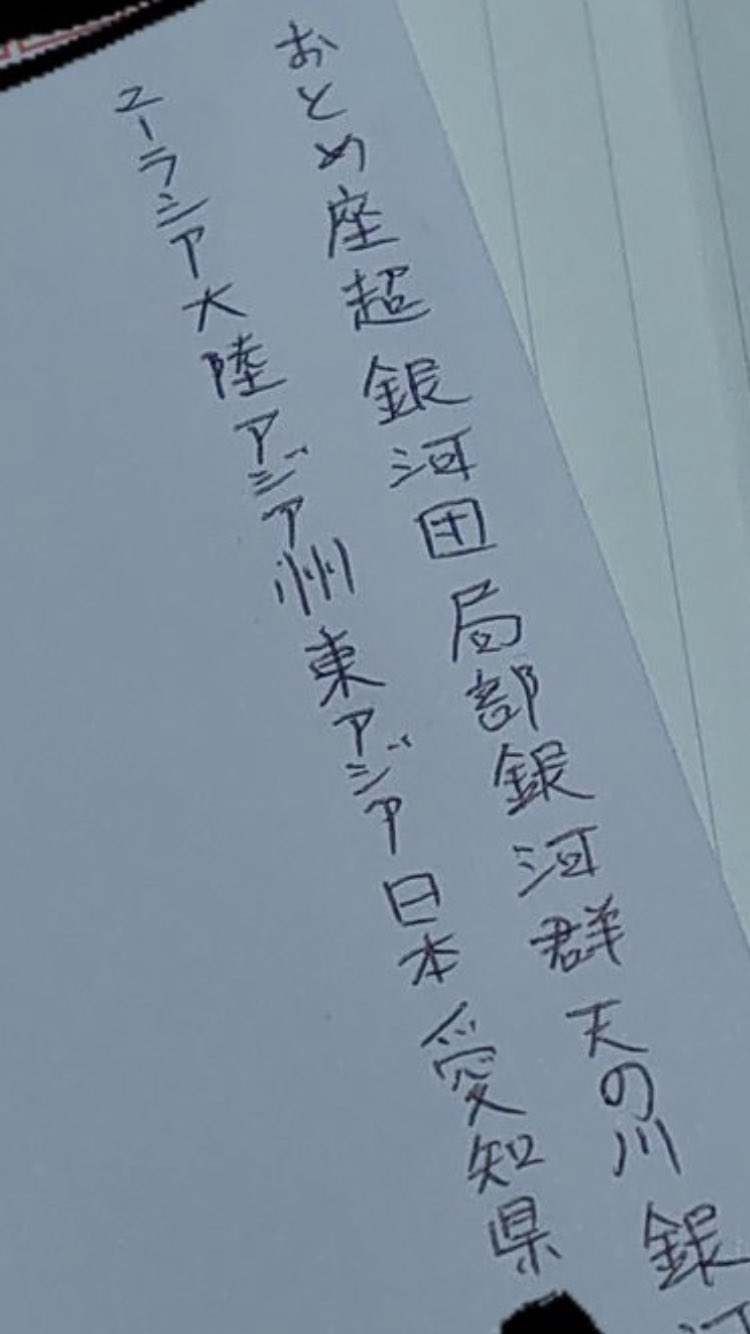 おとめ座超銀河団局部銀河群天の川銀
ユーラシア大陸アジア州東アジア日本愛知県